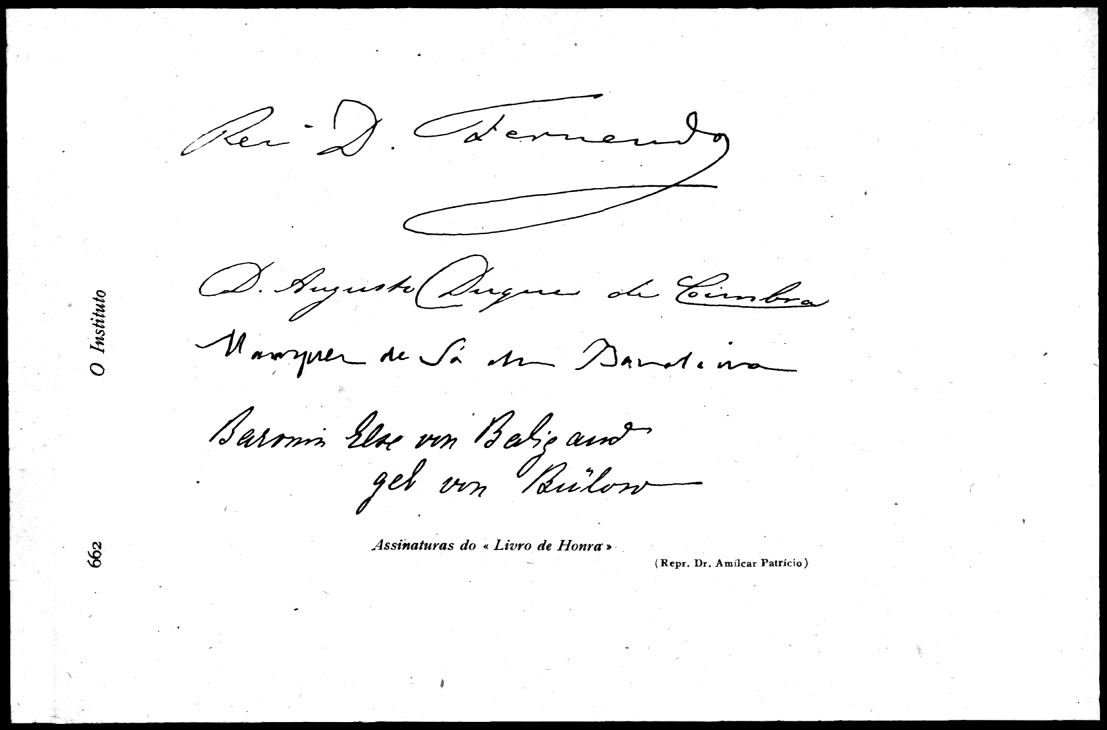 Rei D. Fernando
D. Augusto Duque de Coimbra
Marquez de Sá da Bandeira
Baronin Else von Baligand
geb von Bülow
Assinaturas do « Livro de Honra »
(Repr. Dr. Amílcar Patrício)
O Instituto
662